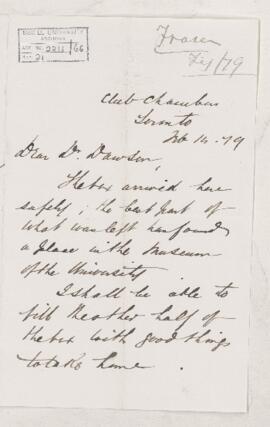 McGILL UNIVERSITY
ARCHIVES
ACC. NO. 2211/66
REF. 21
Fraser
Feb/79
Club Chambers
Toronto
Feb 14. 79
Dear Dr. Dawson,
The box arrived here
safely; the best part of
what was left has found
a place in the Museum
of the University.
I shall be able to
fill the other half of
the box with good things
to take home.